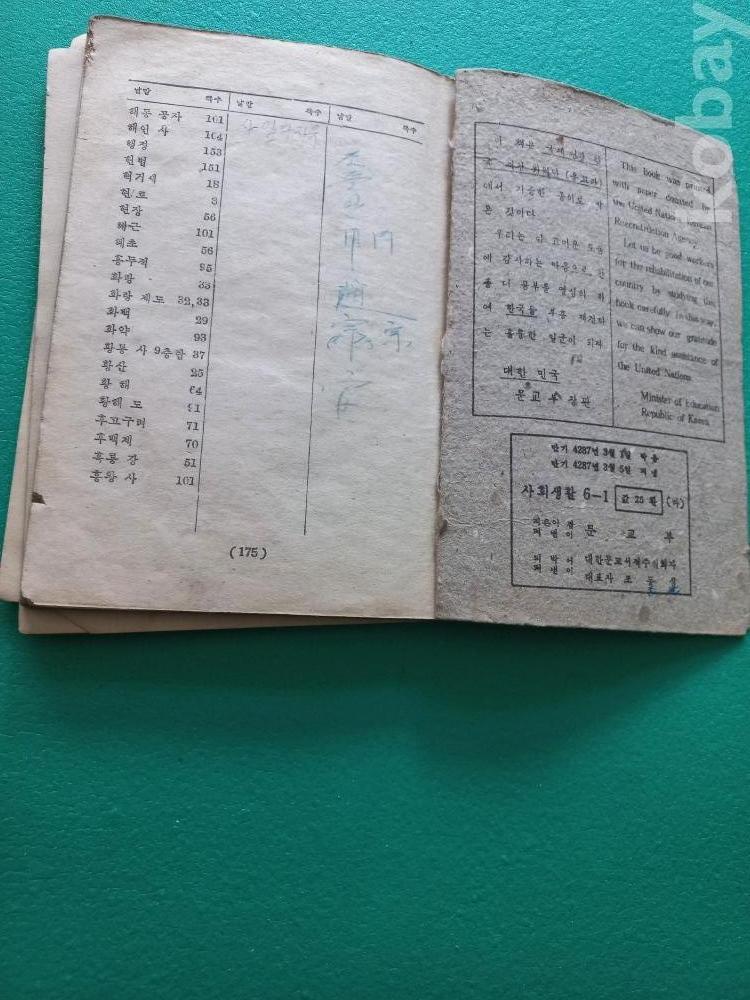 낱말 쪽수 낱말 쪽수 낱말 쪽수
해동 공자 101
해인 사 104
행정 153
헌법 151
혁거세 18
현토 3
현장 56
혜근 101
혜초 56
홍두적 95
화랑 33
화랑 제도 32,33
화백 29
화약 93
황룡 사 9층탑 37
황산 25
황해 64
황해 도 91
후고구려 71
후백제 70
흑룡 강 51
흥왕 사 101
(175)
이 책은 국제 연합 한
에서 기증한 종이로 박
은 것이다.
우리는 이 고마운 도움
에 감사하는 마음으로, 한
층 더 공부를 열심히 하
여 한국을 부흥 재건하
는 훌륭한 일군이 되자.
대한 민국
문교부 장관
This book was printed
with paper donated by
the United Nations Korean
Reconstruction Agency.
Let us be good workers
for the rehabilitation of our
country by studying this
book carefully; in this way
we can show our gratitude
for the kind assistance of
the United Nations.
Minister of Education
Republic of Korea
단기 4287년 3월 1일 박음
단기 4287년 3월 5일 펴냄
사회생활 6-1 값 25환
지은이 겸
펴낸이 문 교 부
대한문교서적주식회사
대표자 조
kobay